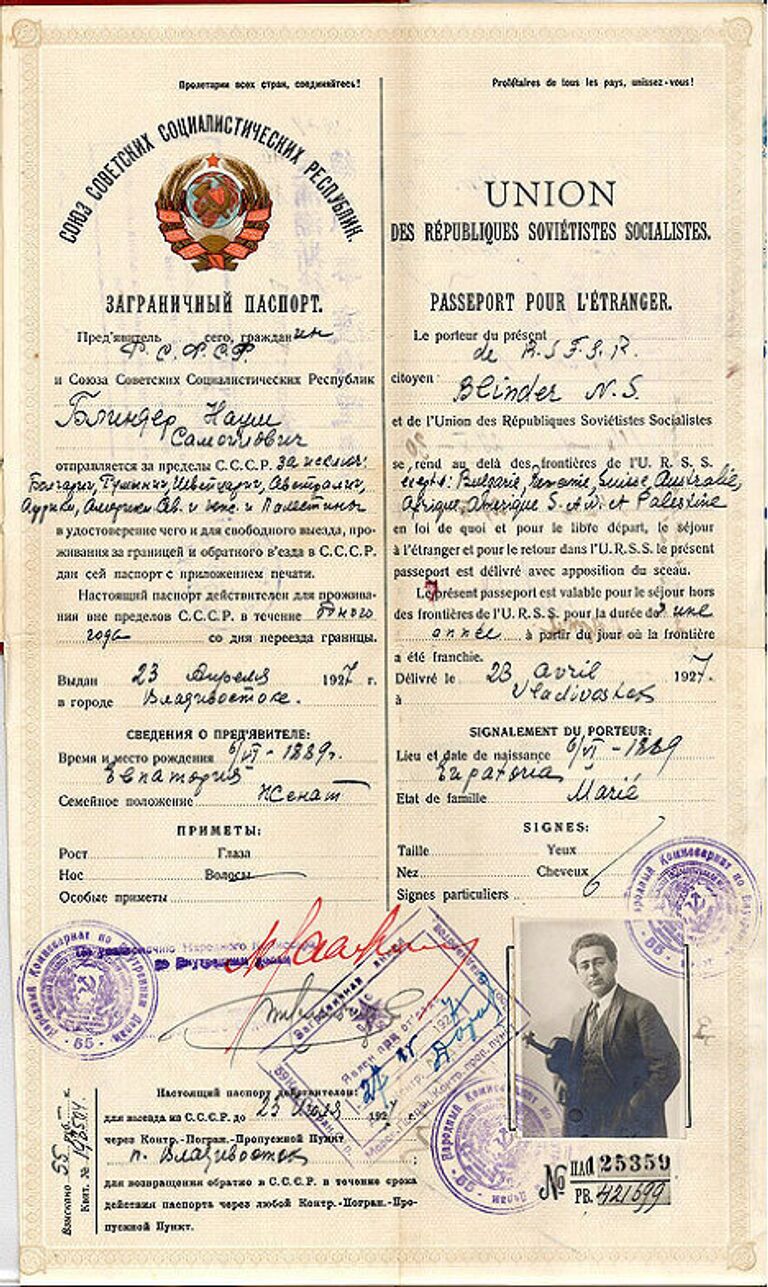 Пролетарии всех стран, соединяйтесь!
СОЮЗ СОВЕТСКИХ СОЦИАЛИСТИЧЕСКИХ РЕСПУБЛИК.
ЗАГРАНИЧНЫЙ ПАСПОРТ.
Пред'явитель сего, гражданин
Р.С.Ф.С.Р.
и Союза Советских Социалистических Республик
Блиндер Наум
Самойлович
отправляется за пределы С.С.С.Р. за исключ:
Болгарии, Румынии, Швейцарии, Австралии,
Африки, Америки Св. и юж. и Палестины
в удостоверение чего и для свободного выезда, про-
живания за границей и обратного в'езда в С.С.С.Р.
дан сей паспорт с приложением печати.
Настоящий паспорт действителен для прожива-
ния вне пределов С.С.С.Р. в течение одного
года со дня переезда границы.
Выдан 23 Апреля 1927 г.
в городе Владивостоке.
СВЕДЕНИЯ О ПРЕД'ЯВИТЕЛЕ:
Время и место рождения 6/VI - 1889 г.
Евпатория
Семейное положение Женат
ПРИМЕТЫ:
Рост Глаза
Нос Волосы
Особые приметы
Народный Комиссариат по Внутренним Делам
- 55 -
по Внутренним Делам
Настоящий паспорт действителен:
для выезда из С.С.С.Р. до 23 Июля 1927
через Контр.-Погран.-Пропускной Пункт
п. Владивосток
для возвращения обратно в С.С.С.Р. в течение срока
действия паспорта через любой Контр.-Погран.-Про-
пускной Пункт.
Взыскано 55 руб. к.
Квит. №
Prolétaires de tous les pays, unissez-vous!
UNION
DES RÉPUBLIQUES SOVIÉTISTES SOCIALISTES.
PASSEPORT POUR L'ÉTRANGER.
Le porteur du présent
de R.S.F.S.R.
citoyen Blinder N.S.
et de l'Union des Républiques Soviétistes Socialistes
se rend au delà des frontières de l'U. R. S. S.
exept: Bulgarie, Roumanie, Suisse, Australie,
Afrique, Amérique S. et N. et Palestine
en foi de quoi et pour le libre départ, le séjour
à l'étranger et pour le retour dans l'U.R.S.S. le présent
passeport est délivré avec apposition du sceau.
Le présent passeport est valable pour le séjour hors
des frontières de l'U.R.S.S. pour la durée d'une
année à partir du jour où la frontière
a été franchie.
Délivré le 23 avril 1927
à Vladivostok
SIGNALEMENT DU PORTEUR:
Lieu et date de naissance 6/VI - 1889
Eupatoria
Etat de famille Marié
SIGNES:
Taille Yeux
Nez Cheveux
Signes particuliers
Народный Комиссариат по Внутренним
- 55 -
Народный Комиссариат
Делам
№ ПАП 125359
РВ. 421699